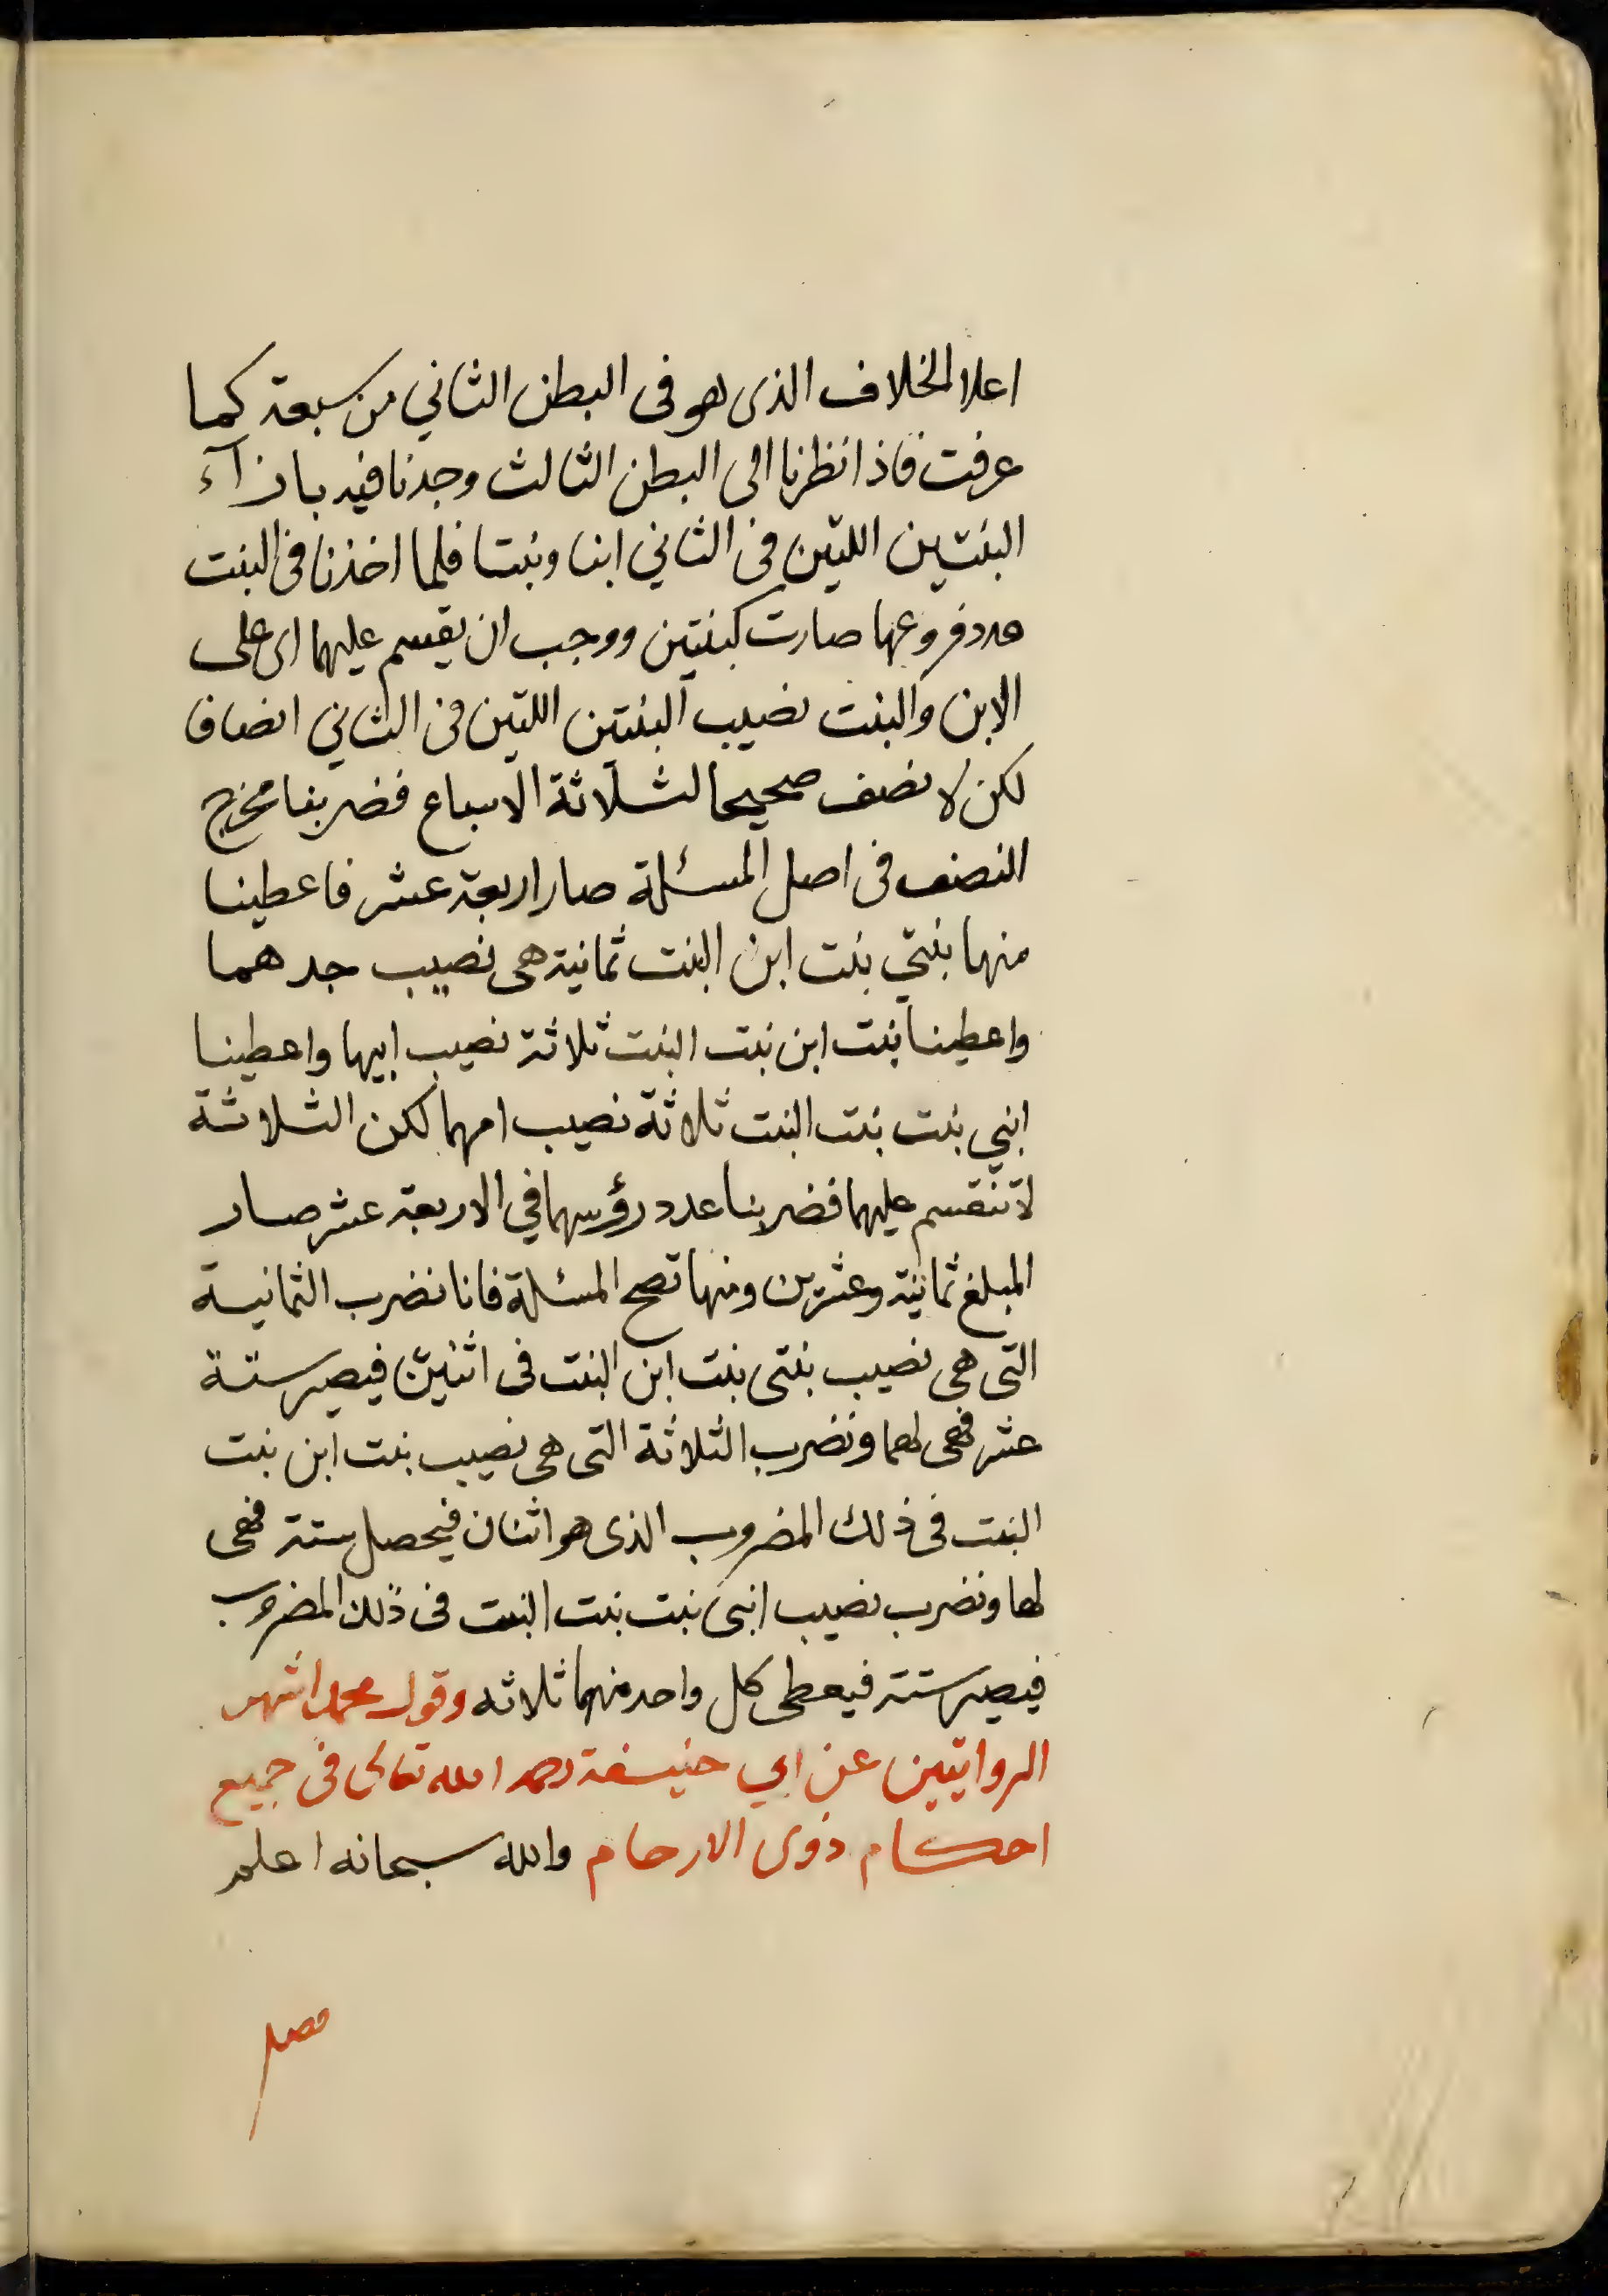 اعلا الخلاف الذى هو فى البطن الثاني من سبعة كما
عرفت فاذا نظرنا الى البطن الثالث وجدنا فيه بازآء
البنتين اللتين فى الثاني ابنا وبنتا فلما اخذنا فى البنت
عدد فروعها صارت كبنتين ووجب ان يقسم عليهما اى على
الابن والبنت نصيب البنتين اللتين فى الثاني انصافا
لكن لا نصف صحيحا لثلاثة الاسباع فضربنا مخرج
النصف فى اصل المسئلة صار اربعة عشر فاعطينا
منها بنتي بنت ابن البنت ثمانية هى نصيب جدهما
واعطينا بنت ابن بنت البنت ثلاثة نصيب ابيها واعطينا
ابني بنت بنت البنت ثلاثة نصيب امهما لكن الثلاثة
لا تنقسم عليهما فضربنا عدد رؤسهما في الاربعة عشر صار
المبلغ ثمانية وعشرين ومنها تصح المسئلة فانا نضرب الثمانية
التى هى نصيب بنتى بنت ابن البنت فى اثنين فيصير ستة
عشر فهى لهما ونضرب الثلاثة التى هى نصيب بنت ابن بنت
البنت فى ذلك المضروب الذى هو اثنان فيحصل ستة فهى
لها ونضرب نصيب ابنى بنت بنت البنت فى ذلك المضروب
فيصير ستة فيعطى كل واحد منهما ثلاثه وقول محمد اشهر
الروايتين عن ابي حنيفة رحمه الله تعالى فى جميع
احكام ذوى الارحام والله سبحانه اعلم
فصل